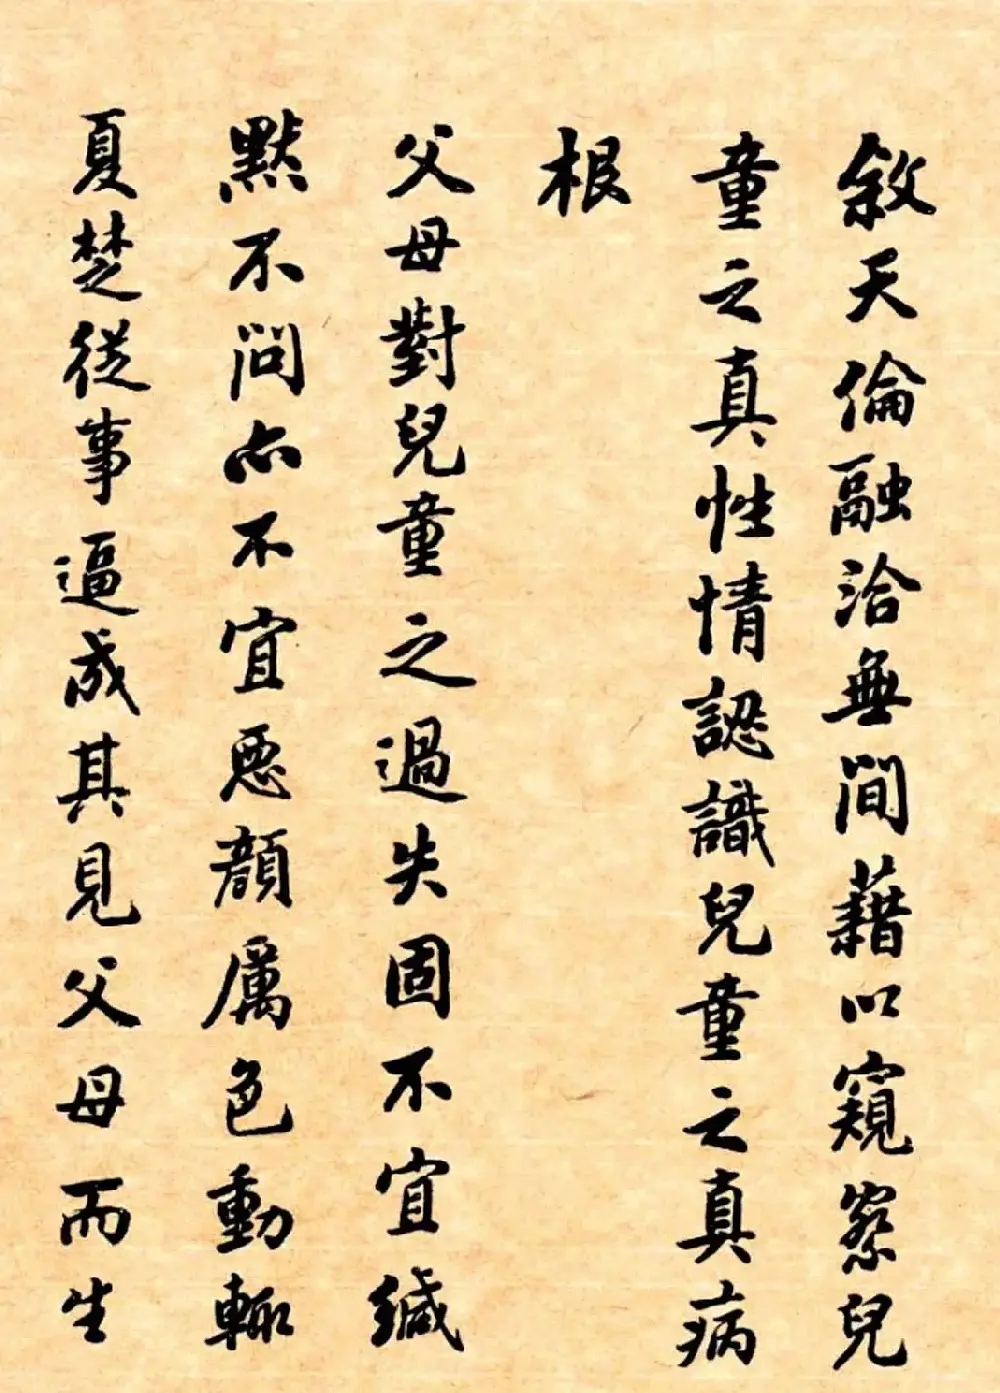 敘天倫融洽無間藉以窺察兒
童之真性情認識兒童之真病
根
父母對兒童之過失固不宜緘
默不問亦不宜惡顏厲色動輒
夏楚從事逼成其見父母而生